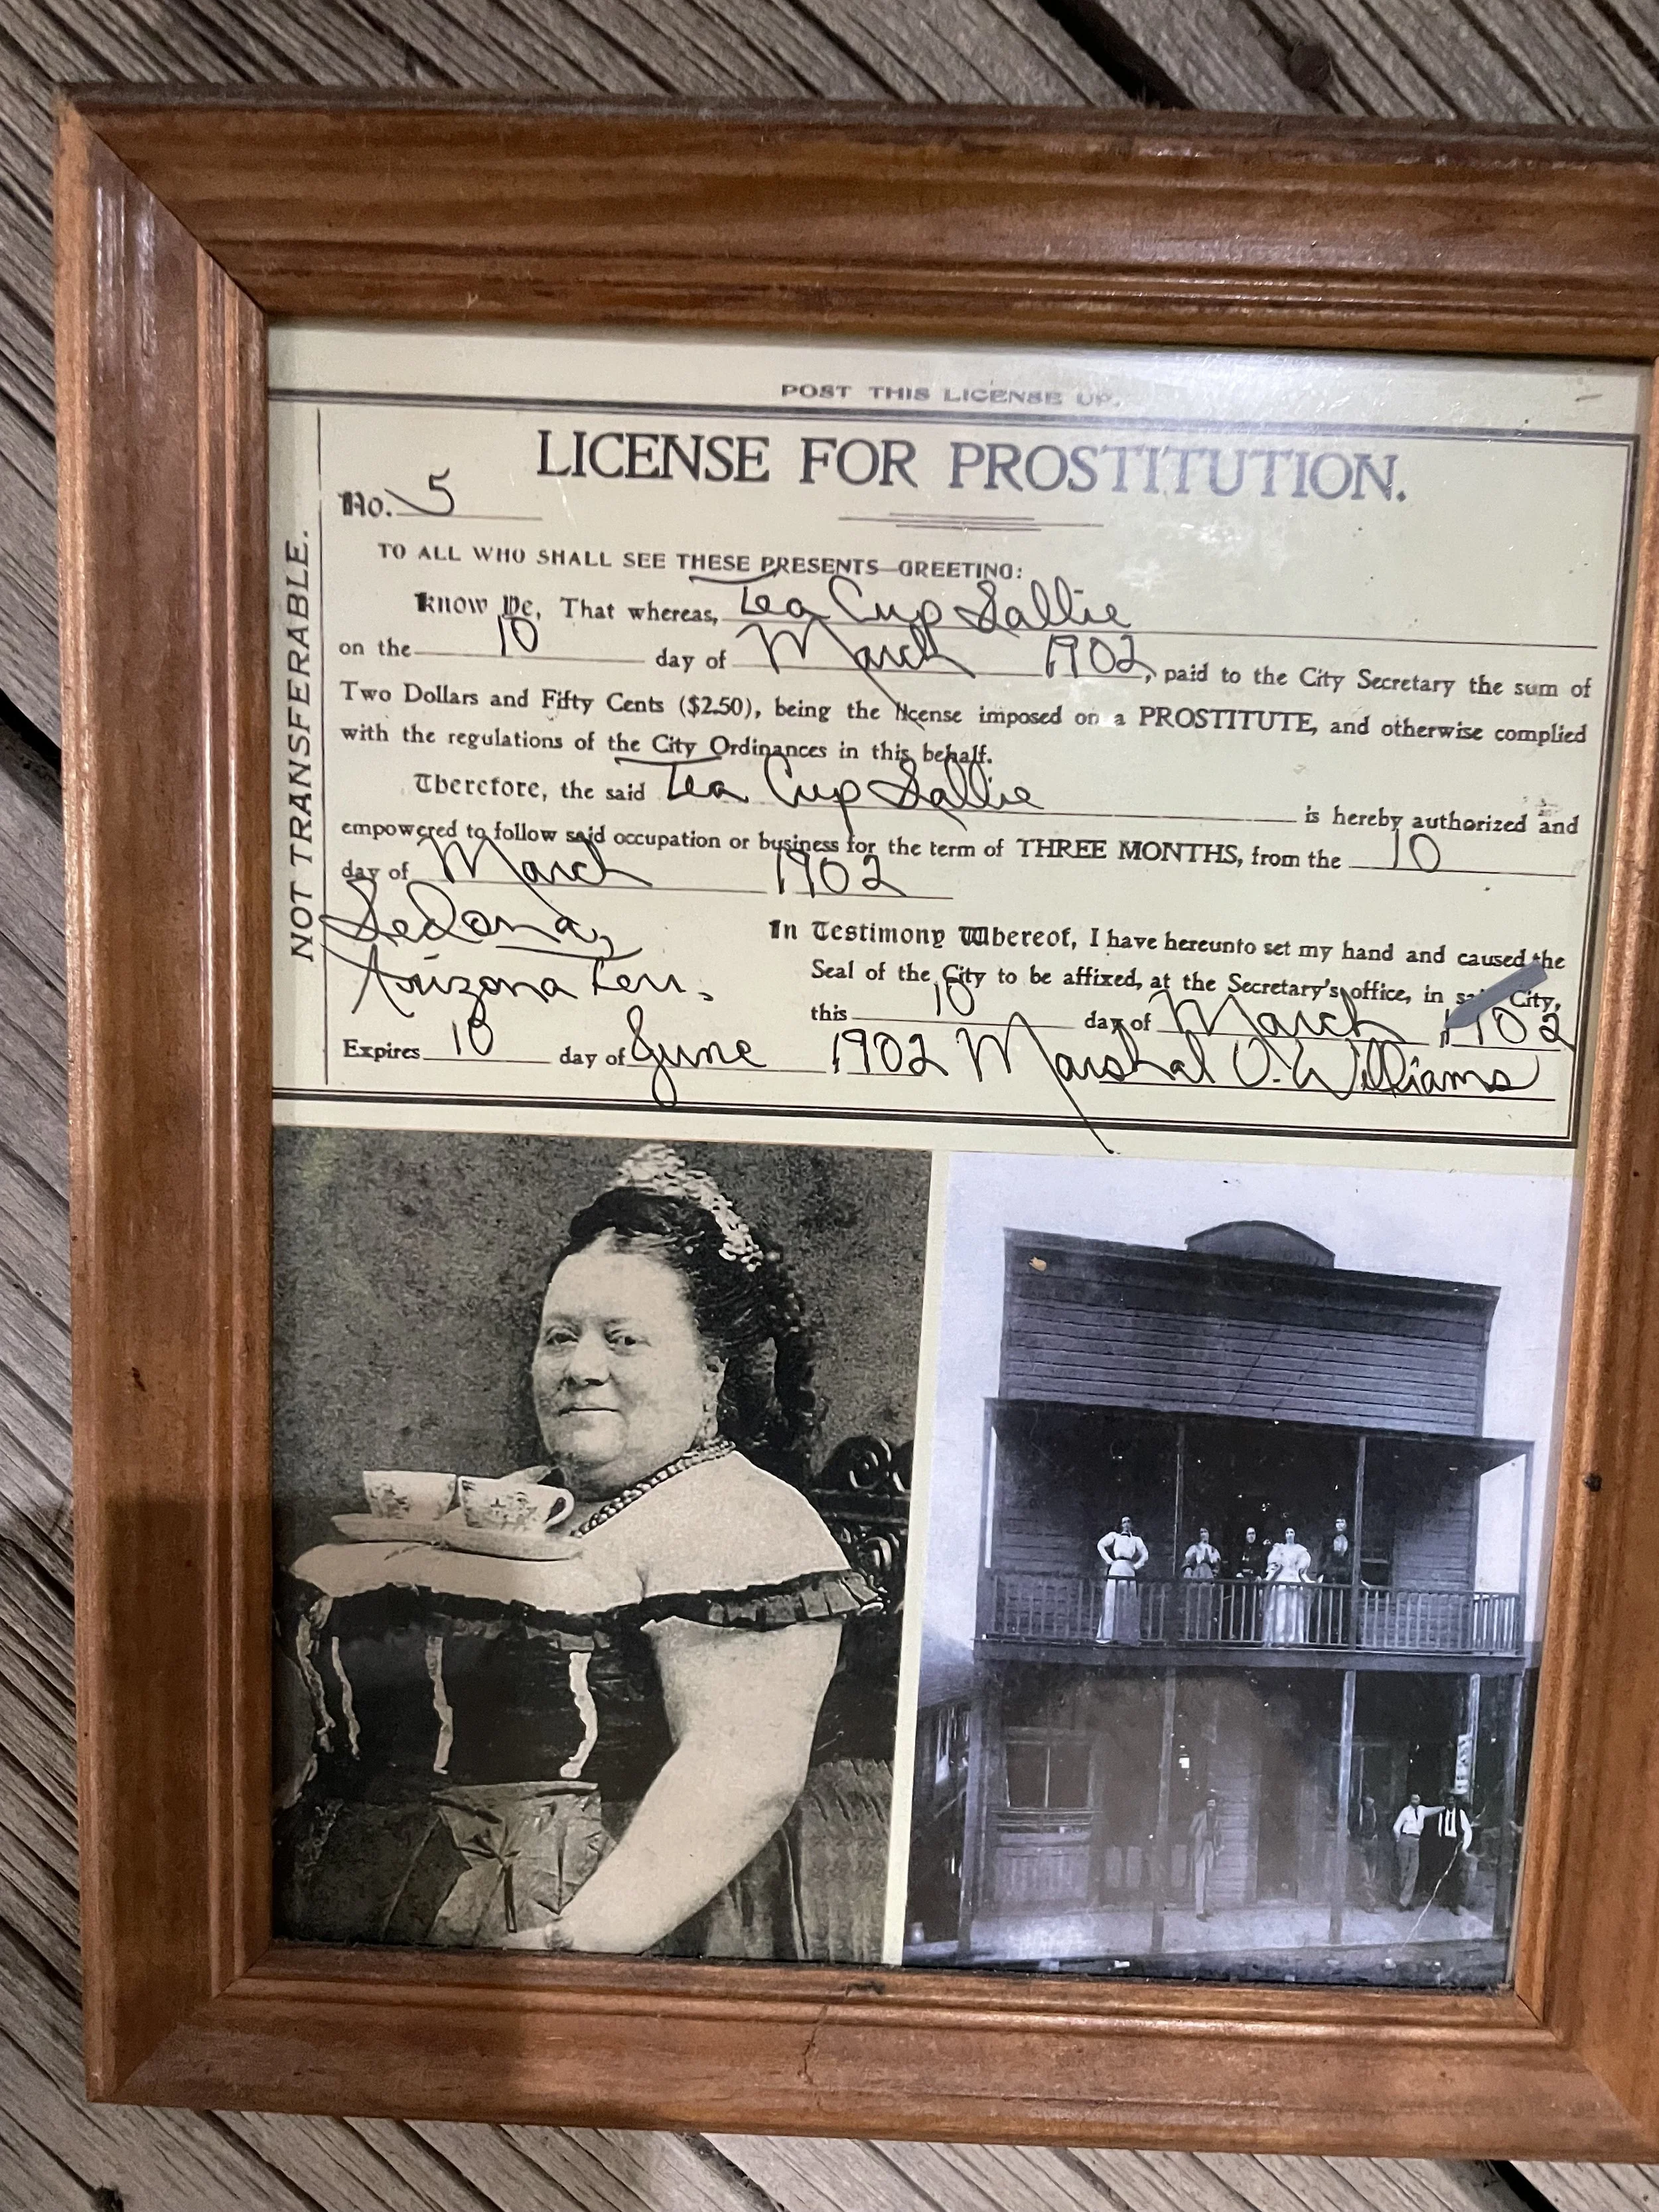 POST THIS LICENSE UP.
LICENSE FOR PROSTITUTION.
No. 5
NOT TRANSFERABLE.
TO ALL WHO SHALL SEE THESE PRESENTS—GREETING:
Know Ye, That whereas, Tea Cup Sallie
on the 10 day of March 1902, paid to the City Secretary the sum of
Two Dollars and Fifty Cents ($2.50), being the license imposed on a PROSTITUTE, and otherwise complied
with the regulations of the City Ordinances in this behalf.
Therefore, the said Tea Cup Sallie is hereby authorized and
empowered to follow said occupation or business for the term of THREE MONTHS, from the 10
day of March 1902
Sedona,
Arizona Terr.
In Testimony Whereof, I have hereunto set my hand and caused the
Seal of the City to be affixed, at the Secretary's office, in said City,
this 10 day of March 1902
Expires 10 day of June 1902 Marshal V. Williams